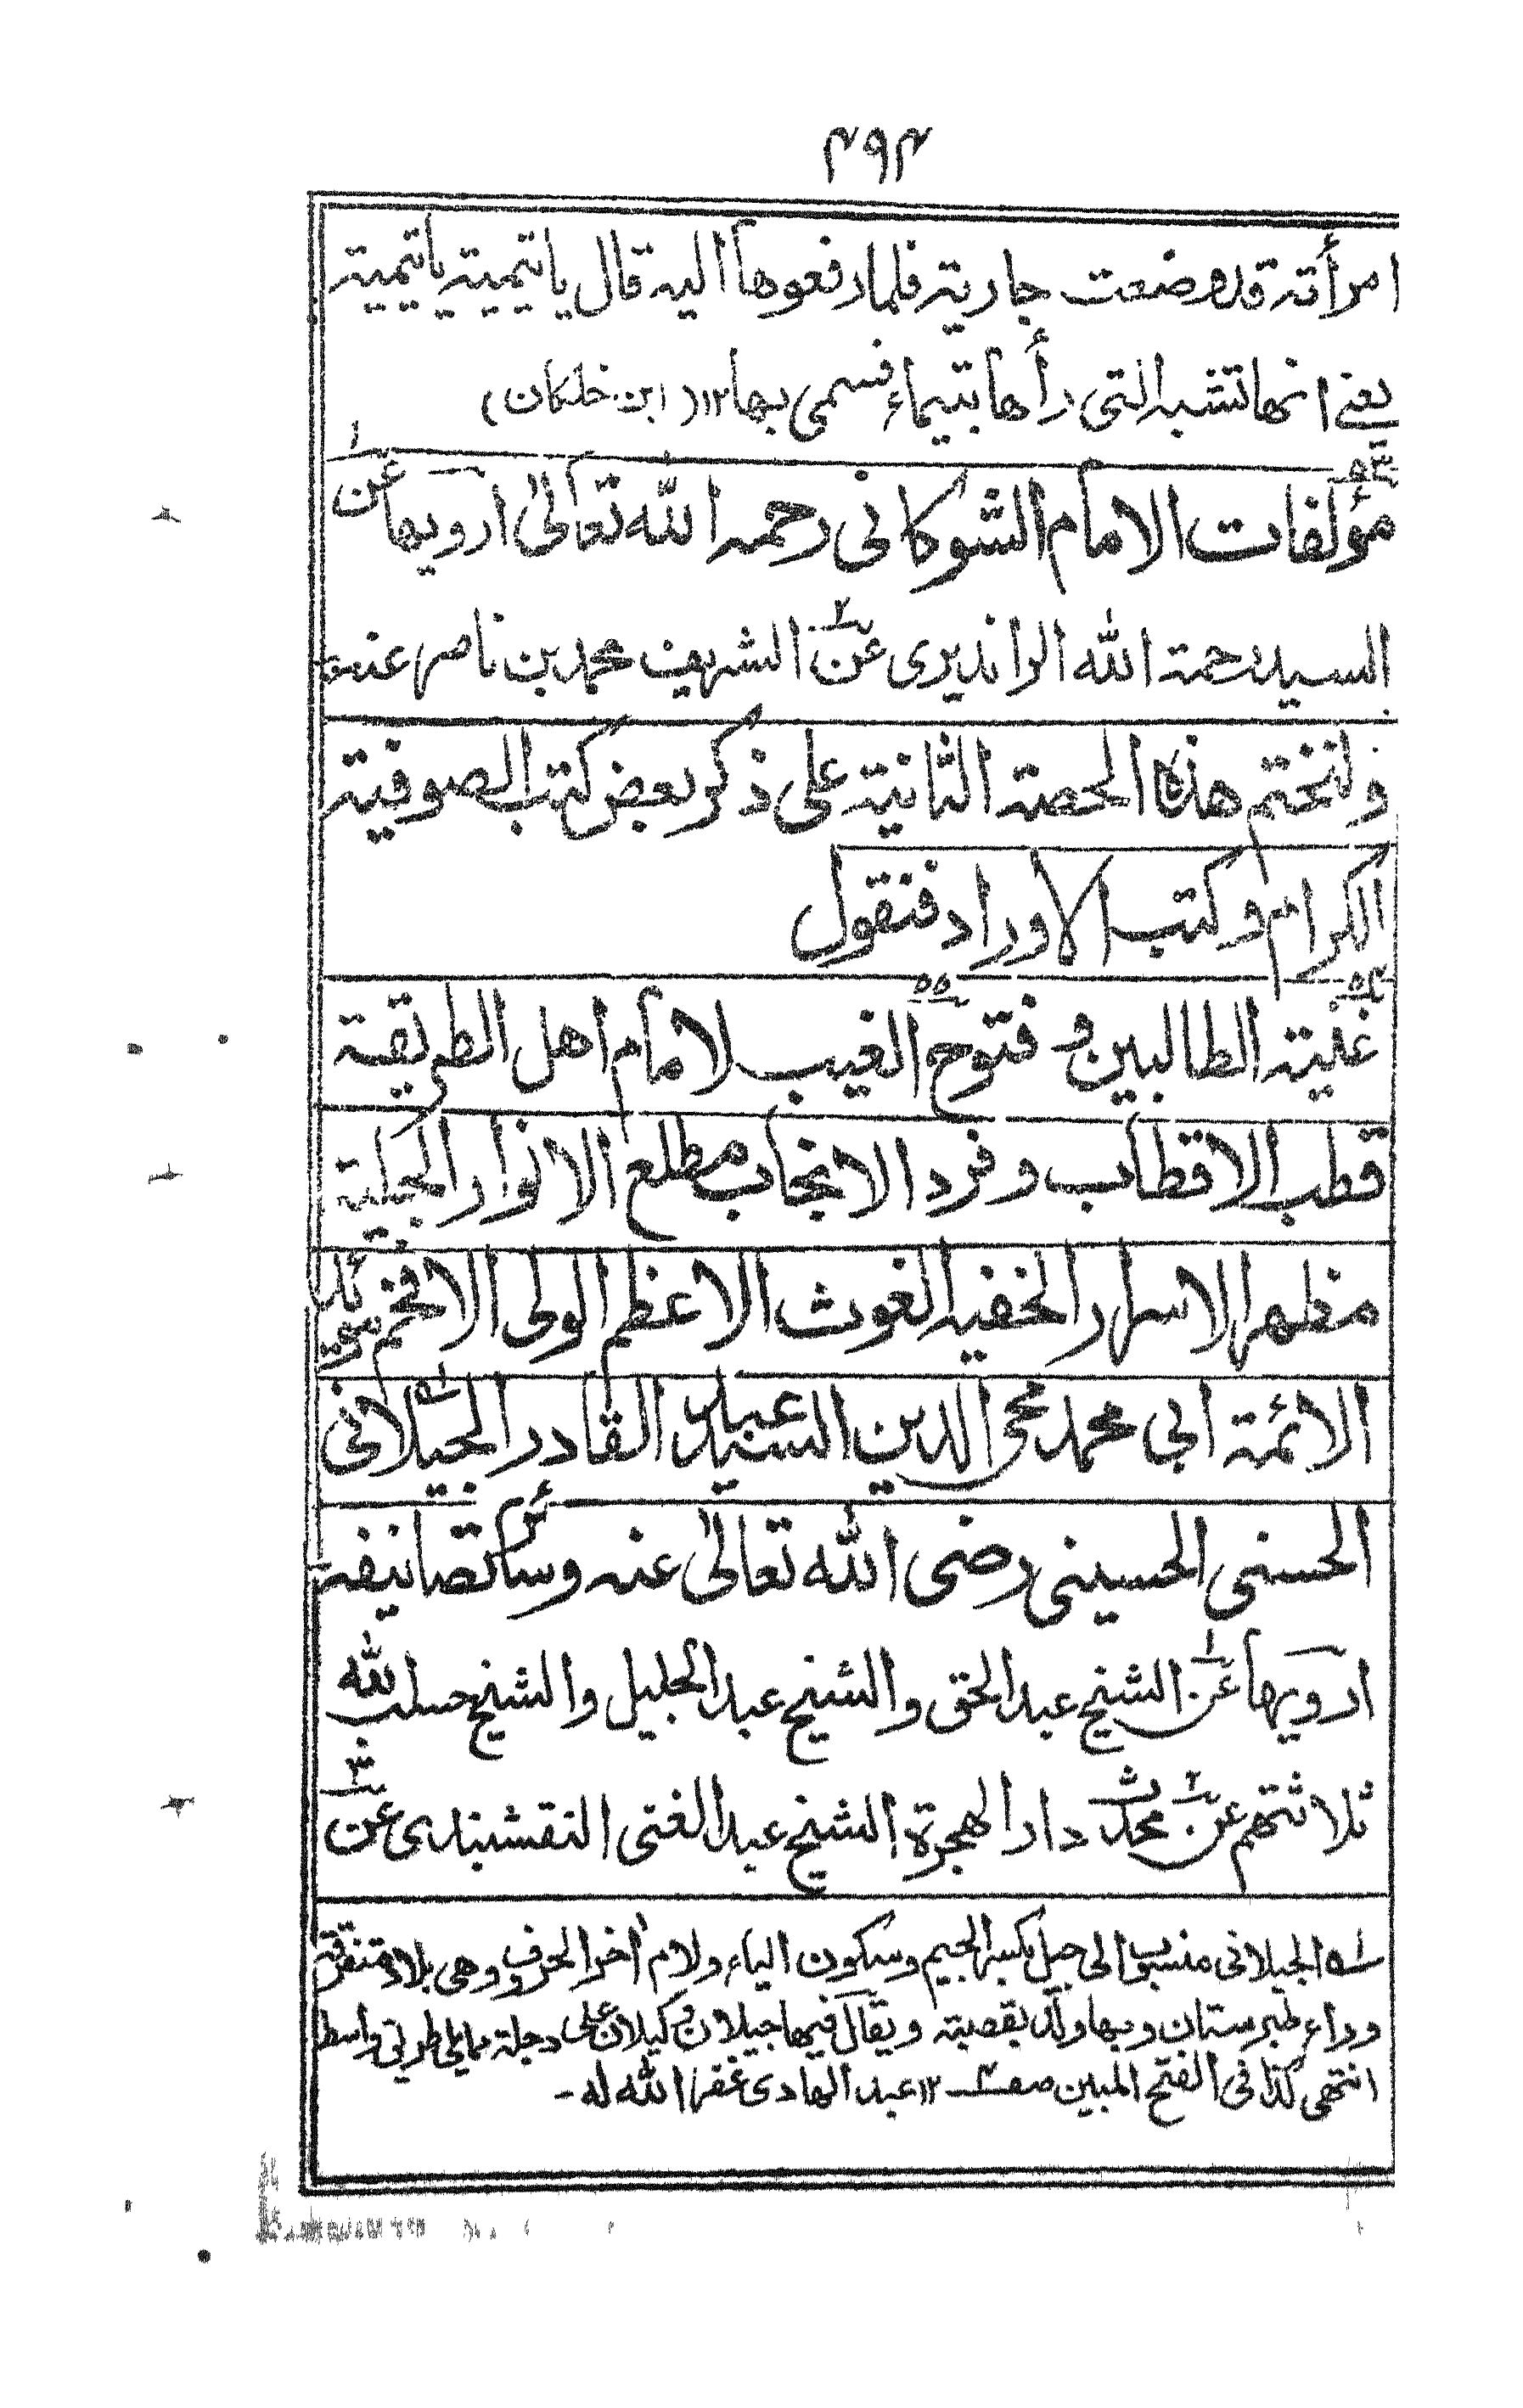 ۴۹۴
امرأته قد وضعت جارية فلما رفعوها اليه قال يا تيمية يا تيمية
يعنے انها تشبه التي رأها بتيماء فسمى بها ۱۲ (ابن خلكان)
۵۳ مؤلفات الامام الشوكاني رحمه الله تعالىٰ ارويها عن ۱
السيد رحمة الله الرانديرى عن ۲ الشريف محمد بن ناصر عنه
ولنختم هذه الحصة الثانية على ذكر بعض كتب الصوفية
الكرام وكتب الاوراد فنقول
۵۴ غنية الطالبين و ۵۵ فتوح الغيب لامام اهل الطريقة
قطب الاقطاب وفرد الانجاب مطلع الانوار الجلية
مظهر الاسرار الخفية الغوث الاعظم الولى الافخم سيدنا
الائمة ابي محمد محي الدين السيد عبد القادر الجيلاني ؎۱
الحسنى الحسيني رضى الله تعالىٰ عنه وسائر تصانيفه
ارويها عن ۱ الشيخ عبد الحق والشيخ عبد الجليل والشيخ حسب الله
ثلاثتهم عن ۲ محدث دار الهجرة الشيخ عبد الغنى النقشبندى عن ۳
؎۱ الجيلاني منسوب الى جيل بكسر الجيم وسكون الياء ولام اخر الحروف وهي بلاد متفرقة
وراء طبرستان وبها ولد بقصبة ويقال فيها جيلان وكيلان على دجلة مما يلي طريق واسط
انتهى كذا في الفتح المبين صفـ ۴ ۱۲ عبد الهادى غفر الله له -